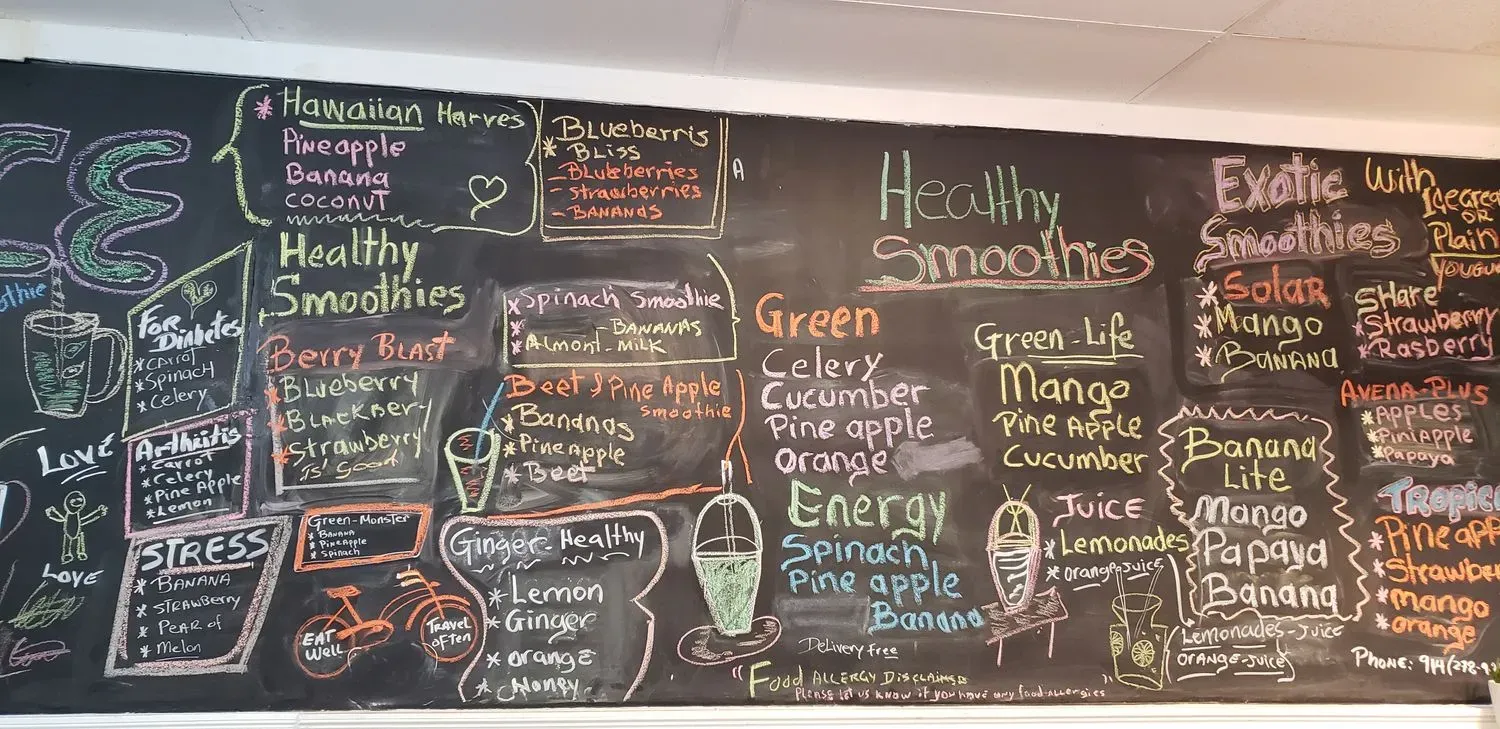 * Hawaiian Harves
Pineapple
Banana
coconut
BLueberris
* BLiss
- BLueberries
- strawberries
- BANANAS
A
Healthy
Smoothies
For
Diabetes
* carrot
* Spinach
* Celery
Arthritis
* Carrot
* Celery
* Pine Apple
* Lemon
STRESS
* BANANA
* STRAWBerry
* PeAR of
* Melon
LOVE
LOVE
Berry BLAST
* BLueberry
* BLACKBerry
* Strawberry
is' Good
* Spinach Smoothie
* - BANANAS
* Almont - MiLK
Beet & Pine Apple
Smoothie
* Bananas
* Pineapple
* Beet
Green-Monster
* BANANA
* Pineapple
* Spinach
EAT
Well
TRAVEL
often
Ginger-Healthy
* Lemon
* Ginger
* orange
* Honey
Healthy
Smoothies
Green
Celery
Cucumber
Pine apple
Orange
Energy
Spinach
Pine apple
Banana
Green-Life
Mango
Pine Apple
Cucumber
Juice
* Lemonades
* orange juice
Delivery free
"Food ALLERGY DISCLAIMER
Please let us know if you have any food allergies"
Exotic
Smoothies
With
OR
Plain
Solar
* Mango
* BANANA
SHare
* Strawberry
* Rasberry
AVENA-PLUS
* Apples
* PiniApple
* Papaya
Banana
Lite
Mango
Papaya
Banana
Lemonades-Juice
ORANGE-JUICE
* mango
* orange
Phone: 914/